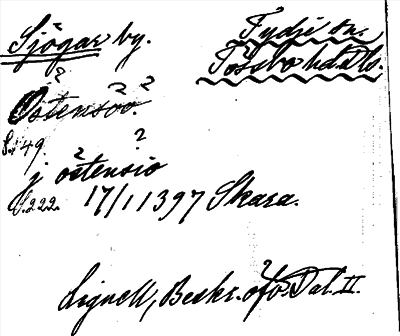 Sjögar by.
Fydje sn.
Tössbo hd. Dls.
Ostensoo.
S. 49.
j ostensio
S. 222. 17/1 1397 Skara.
Lignell, Beskr. öfv. Dal. II.